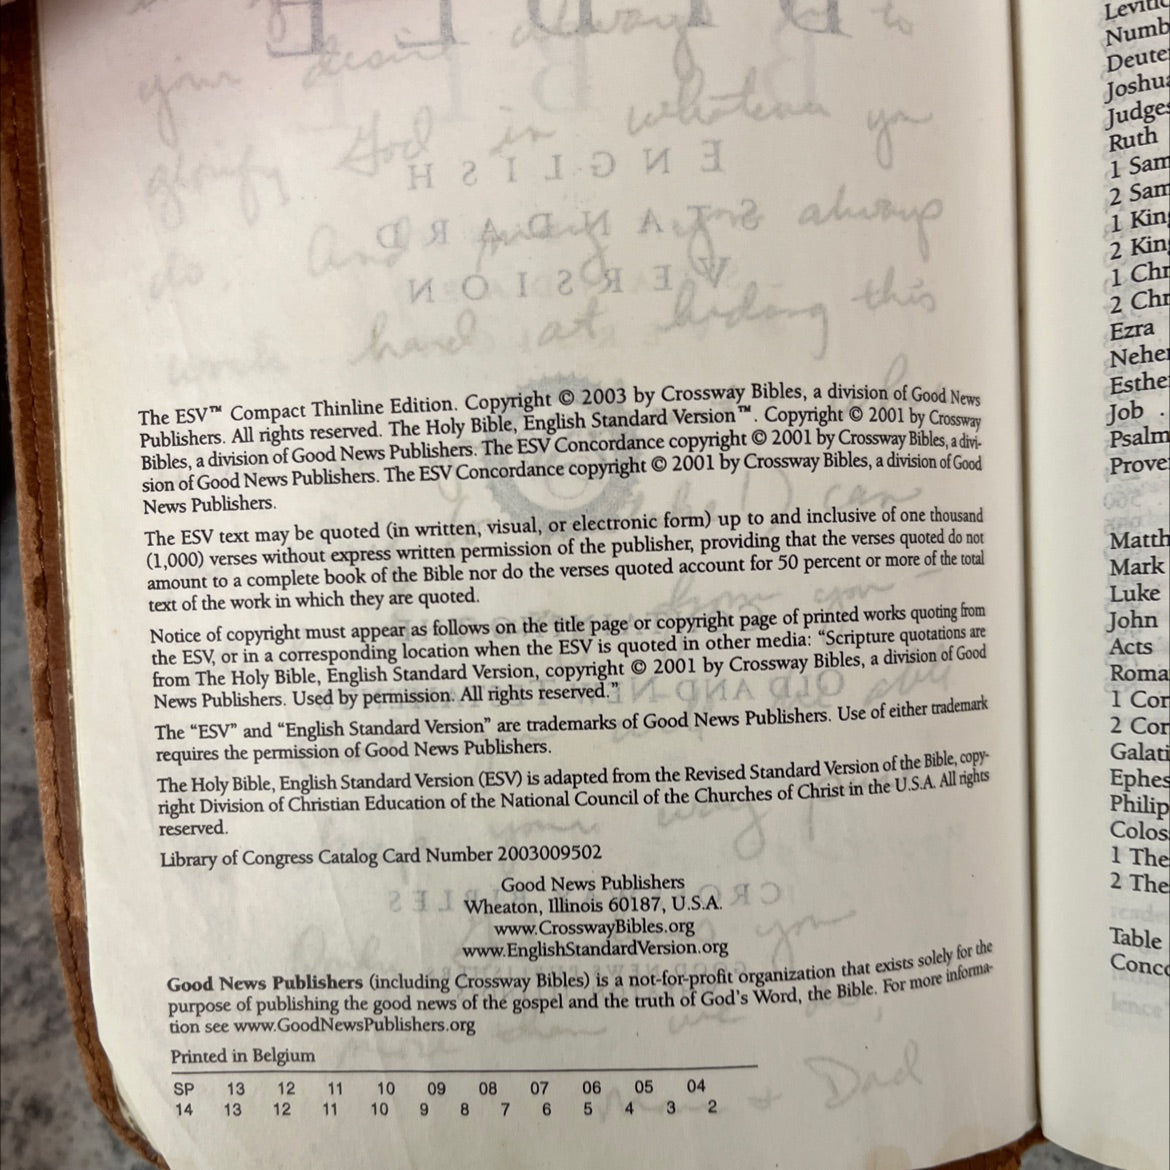 your desire always to
glorify God in whatever you
ENGLISH
do. And
always
STANDARD
VERSION
work hard at hiding this
The ESV™ Compact Thinline Edition. Copyright © 2003 by Crossway Bibles, a division of Good News
Publishers. All rights reserved. The Holy Bible, English Standard Version™. Copyright © 2001 by Crossway
Bibles, a division of Good News Publishers. The ESV Concordance copyright © 2001 by Crossway Bibles, a divi-
sion of Good News Publishers. The ESV Concordance copyright © 2001 by Crossway Bibles, a division of Good
News Publishers.
The ESV text may be quoted (in written, visual, or electronic form) up to and inclusive of one thousand
(1,000) verses without express written permission of the publisher, providing that the verses quoted do not
amount to a complete book of the Bible nor do the verses quoted account for 50 percent or more of the total
text of the work in which they are quoted.
Notice of copyright must appear as follows on the title page or copyright page of printed works quoting from
the ESV, or in a corresponding location when the ESV is quoted in other media: “Scripture quotations are
from The Holy Bible, English Standard Version, copyright © 2001 by Crossway Bibles, a division of Good
News Publishers. Used by permission. All rights reserved.”
The “ESV” and “English Standard Version” are trademarks of Good News Publishers. Use of either trademark
requires the permission of Good News Publishers.
The Holy Bible, English Standard Version (ESV) is adapted from the Revised Standard Version of the Bible, copy-
right Division of Christian Education of the National Council of the Churches of Christ in the U.S.A. All rights
reserved.
Library of Congress Catalog Card Number 2003009502
Good News Publishers
Wheaton, Illinois 60187, U.S.A.
www.CrosswayBibles.org
www.EnglishStandardVersion.org
Good News Publishers (including Crossway Bibles) is a not-for-profit organization that exists solely for the
purpose of publishing the good news of the gospel and the truth of God's Word, the Bible. For more informa-
tion see www.GoodNewsPublishers.org
Printed in Belgium
SP 13 12 11 10 09 08 07 06 05 04
14 13 12 11 10 9 8 7 6 5 4 3 2
Dad
Levitic
Numb
Deute
Joshua
Judges
Ruth
1 Sam
2 Sam
1 King
2 King
1 Chr
2 Chr
Ezra
Nehe
Esthe
Job .
Psalm
Prove
Matth
Mark
Luke
John
Acts
Roma
1 Cor
2 Cor
Galati
Ephes
Philip
Colos
1 The
2 The
Table
Conco